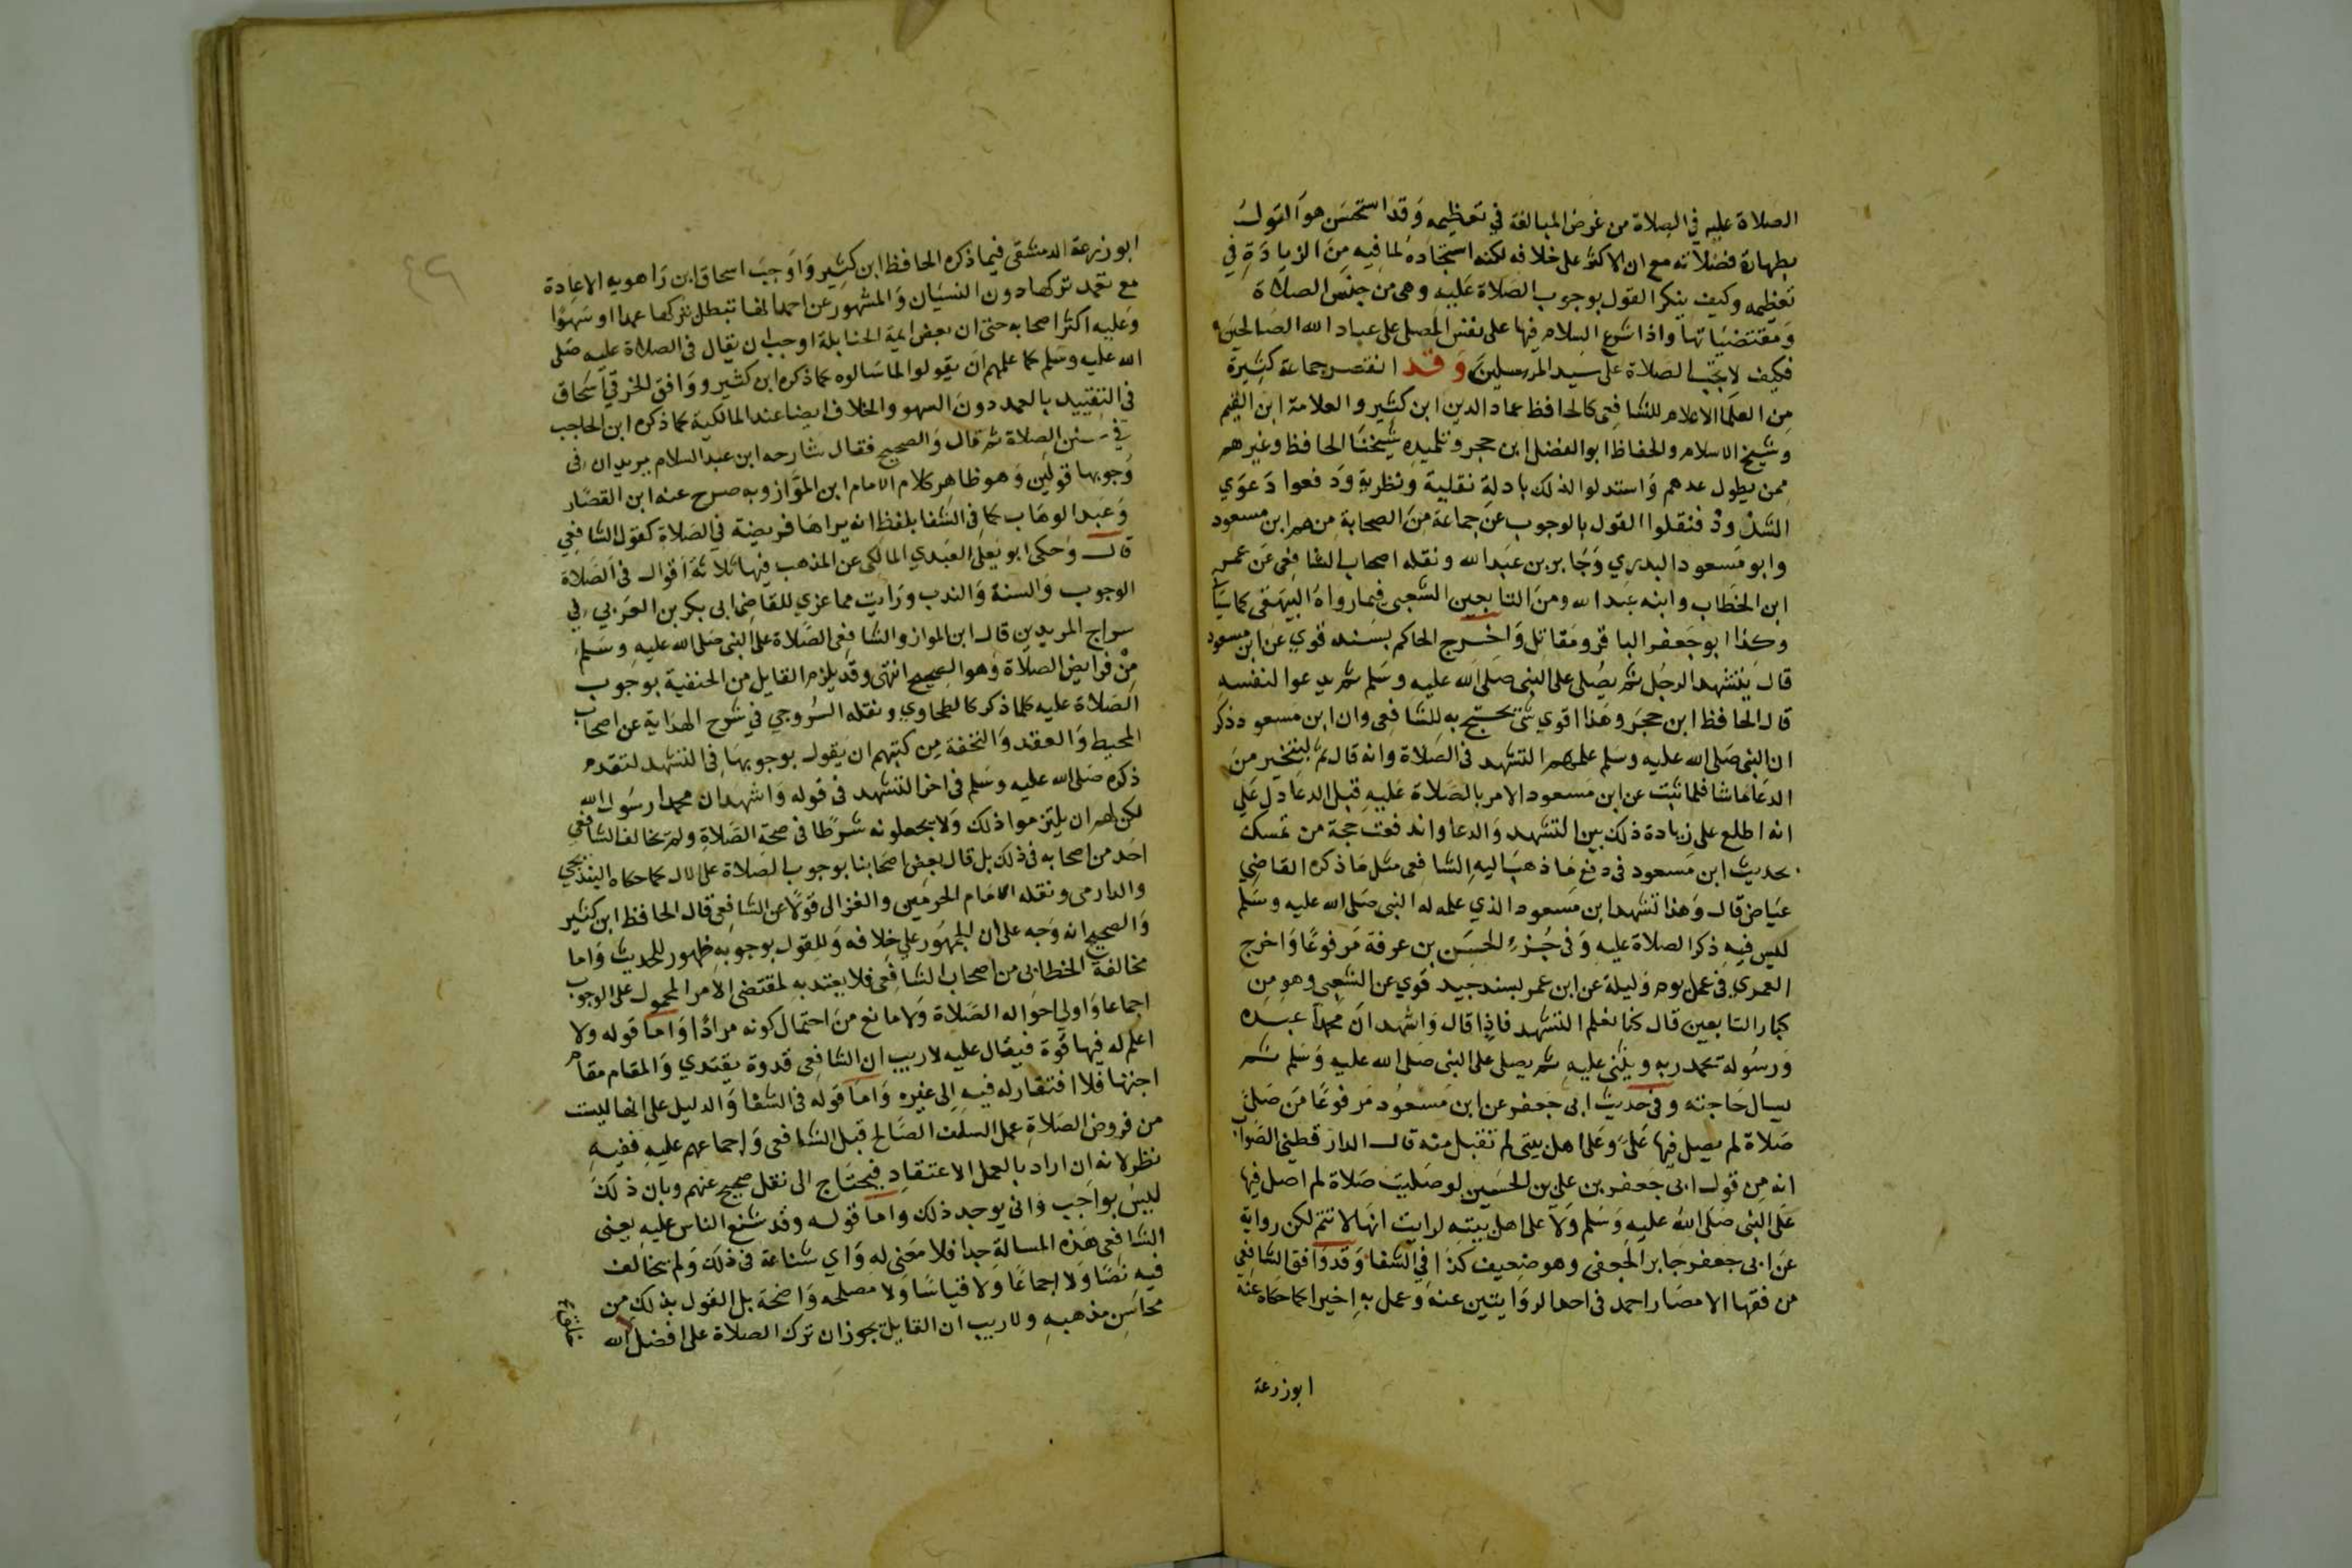 الصلاة عليه في الصلاة من غرض المبالغة في تعظيمه وقد استحسن هو القول
بطهارة فضلاته مع ان الاكثر على خلافه لكنه استجاده لما فيه من الزيادة في
تعظيمه وكيف ينكر القول بوجوب الصلاة عليه وهي من جنس الصلاة
ومقتضياتها واذا شرع السلام فيها على نفس المصلى على عباد الله الصالحين
فكيف لا تجب الصلاة على سيد المرسلين وقد انتصر جماعة كثيرة
من العلما الاعلام للشافعي كالحافظ عماد الدين ابن كثير والعلامة ابن القيم
وشيخ الاسلام والحفاظ ابو الفضل ابن حجر وتلميده شيخنا الحافظ وغيرهم
ممن يطول عدهم واستدلوا لذلك بادلة نقلية ونظرية ودفعوا دعوي
الشذوذ فنقلوا القول بالوجوب عن جماعة من الصحابة منهم ابن مسعود
وابو مسعود البدري وجابر بن عبد الله ونقله اصحاب الشافعي عن عمر
ابن الخطاب وابنه عبد الله ومن التابعين الشعبي فيما رواه البيهقي كما سياتي
وكذا ابو جعفر الباقر ومقاتل واخرج الحاكم بسند قوي عن ابن مسعود
قال يتشهد الرجل ثم يصلى على النبي صلى الله عليه وسلم ثم يدعوا لنفسه
قال الحافظ ابن حجر وهذا اقوي شئ يحتج به للشافعي وان ابن مسعود ذكر
ان النبي صلى الله عليه وسلم علمهم التشهد في الصلاة وانه قال ثم ليتخير من
الدعا ما شا فلما ثبت عن ابن مسعود الامر بالصلاة عليه قبل الدعا دل على
انه اطلع على زيادة ذلك بين التشهد والدعا واندفعت حجة من تمسك
بحديث ابن مسعود في دفع ما ذهب اليه الشافعي مثل ما ذكره القاضي
عياض قال وهذا تشهد ابن مسعود الذي علمه له النبي صلى الله عليه وسلم
ليس فيه ذكر الصلاة عليه وفي جزء الحسن بن عرفة مرفوعا واخرج
العمري في عمل يوم وليلة عن ابن عمر بسند جيد قوي عن الشعبي وهو من
كبار التابعين قال كنا نعلم التشهد فاذا قال واشهد ان محمدا عبده
ورسوله يحمد ربه ويثني عليه ثم يصلى على النبي صلى الله عليه وسلم ثم
يسال حاجته وفي حديث ابي جعفر عن ابن مسعود مرفوعا من صلى
صلاة لم يصل فيها على وعلى اهل بيتي لم تقبل منه قال الدار قطني الصواب
انه من قول ابي جعفر بن علي بن الحسين لو صليت صلاة لم اصل فيها
على النبي صلى الله عليه وسلم ولا على اهل بيته لرايت انها لا تتم لكن رواية
عن ابي جعفر جابر الجعفي وهو ضعيف كذا في الشفا وقد وافق الشافعي
من فقها الامصار احمد في احد الروايتين عنه وعمل به اخيرا كما حكاه عنه
ابو زرعة
ابو زرعة الدمشقي فيما ذكره الحافظ ابن كثير واوجب اسحاق ابن راهويه الاعادة
مع تعمد تركها دون النسيان والمشهور عن احمد انها تبطل بتركها عمدا او سهوا
وعليه اكثر اصحابه حتى ان بعض ايمة الحنابلة اوجب ان يقال في الصلاة عليه صلى
الله عليه وسلم كما علمهم ان يقولوا لما سالوه كما ذكره ابن كثير ووافق الخرقي اسحاق
في التقييد بالعمد دون السهو والخلاف ايضا عند المالكية كما ذكره ابن الحاجب
في سنن الصلاة ثم قال والصحيح فقال شارحه ابن عبد السلام يريد ان في
وجوبها قولين وهو ظاهر كلام الامام ابن المواز وبه صرح عنه ابن القصار
وعبد الوهاب كما في الشفا بلفظ انه يراها فريضة في الصلاة كقول الشافعي
قال وحكى ابو يعلى العبدي المالكي عن المذهب فيها ثلاثة اقوال في الصلاة
الوجوب والسنة والندب ورايت مما عزي للقاضي ابي بكر بن العربي في
سراج المريدين قال ابن المواز والشافعي الصلاة على النبي صلى الله عليه وسلم
من فرايض الصلاة وهو الصحيح انتهى وقد يلزم القايل من الحنفية بوجوب
الصلاة عليه كلما ذكر كالطحاوي ونقله السروجي في شرح الهداية عن اصحاب
المحيط والعقد والتحفة من كتبهم ان يقول بوجوبها في التشهد لتقدم
ذكره صلى الله عليه وسلم في اخر التشهد في قوله واشهد ان محمدا رسول الله
لكن لهم ان يلتزموا ذلك ولا يجعلونه شرطا في صحة الصلاة ولم يخالف الشافعي
احد من اصحابه في ذلك بل قال بعض اصحابنا بوجوب الصلاة على الال كما حكاه البندنيجي
والدارمي ونقله الامام الحرمين والغزالي قولا عن الشافعي قال الحافظ ابن كثير
والصحيح انه وجه على ان الجمهور على خلافه وللقول بوجوبه ظهور للحديث واما
مخالفة الخطابي من اصحاب الشافعي فلا يعتد به لمقتضى الامر المحمول على الوجوب
اجماعا واولى احواله الصلاة ولا مانع من احتمال كونه مرادا واما قوله ولا
اعلم له فيها قوة فيقال عليه لا ريب ان الشافعي قدوة يقتدي والمقام مقام
اجتها فلا افتقار له فيه الى غيره واما قوله في الشفا والدليل على انها ليست
من فروض الصلاة عمل السلف الصالح قبل الشافعي واجماعهم عليه ففيه
نظر لانه ان اراد بالعمل الاعتقاد فيحتاج الى نقل صحيح عنهم وبان ذلك
ليس بواجب واني يوجد ذلك واما قوله وقد شنع الناس عليه يعني
الشافعي هذه المسالة جدا فلا معنى له واي شناعة في ذلك ولم يخالف
فيه نصا ولا اجماعا ولا قياسا ولا مصلحه واضحة بل القول بذلك من
محاسن مذهبه ولا ريب ان القايل بجوزان ترك الصلاة على افضل الله